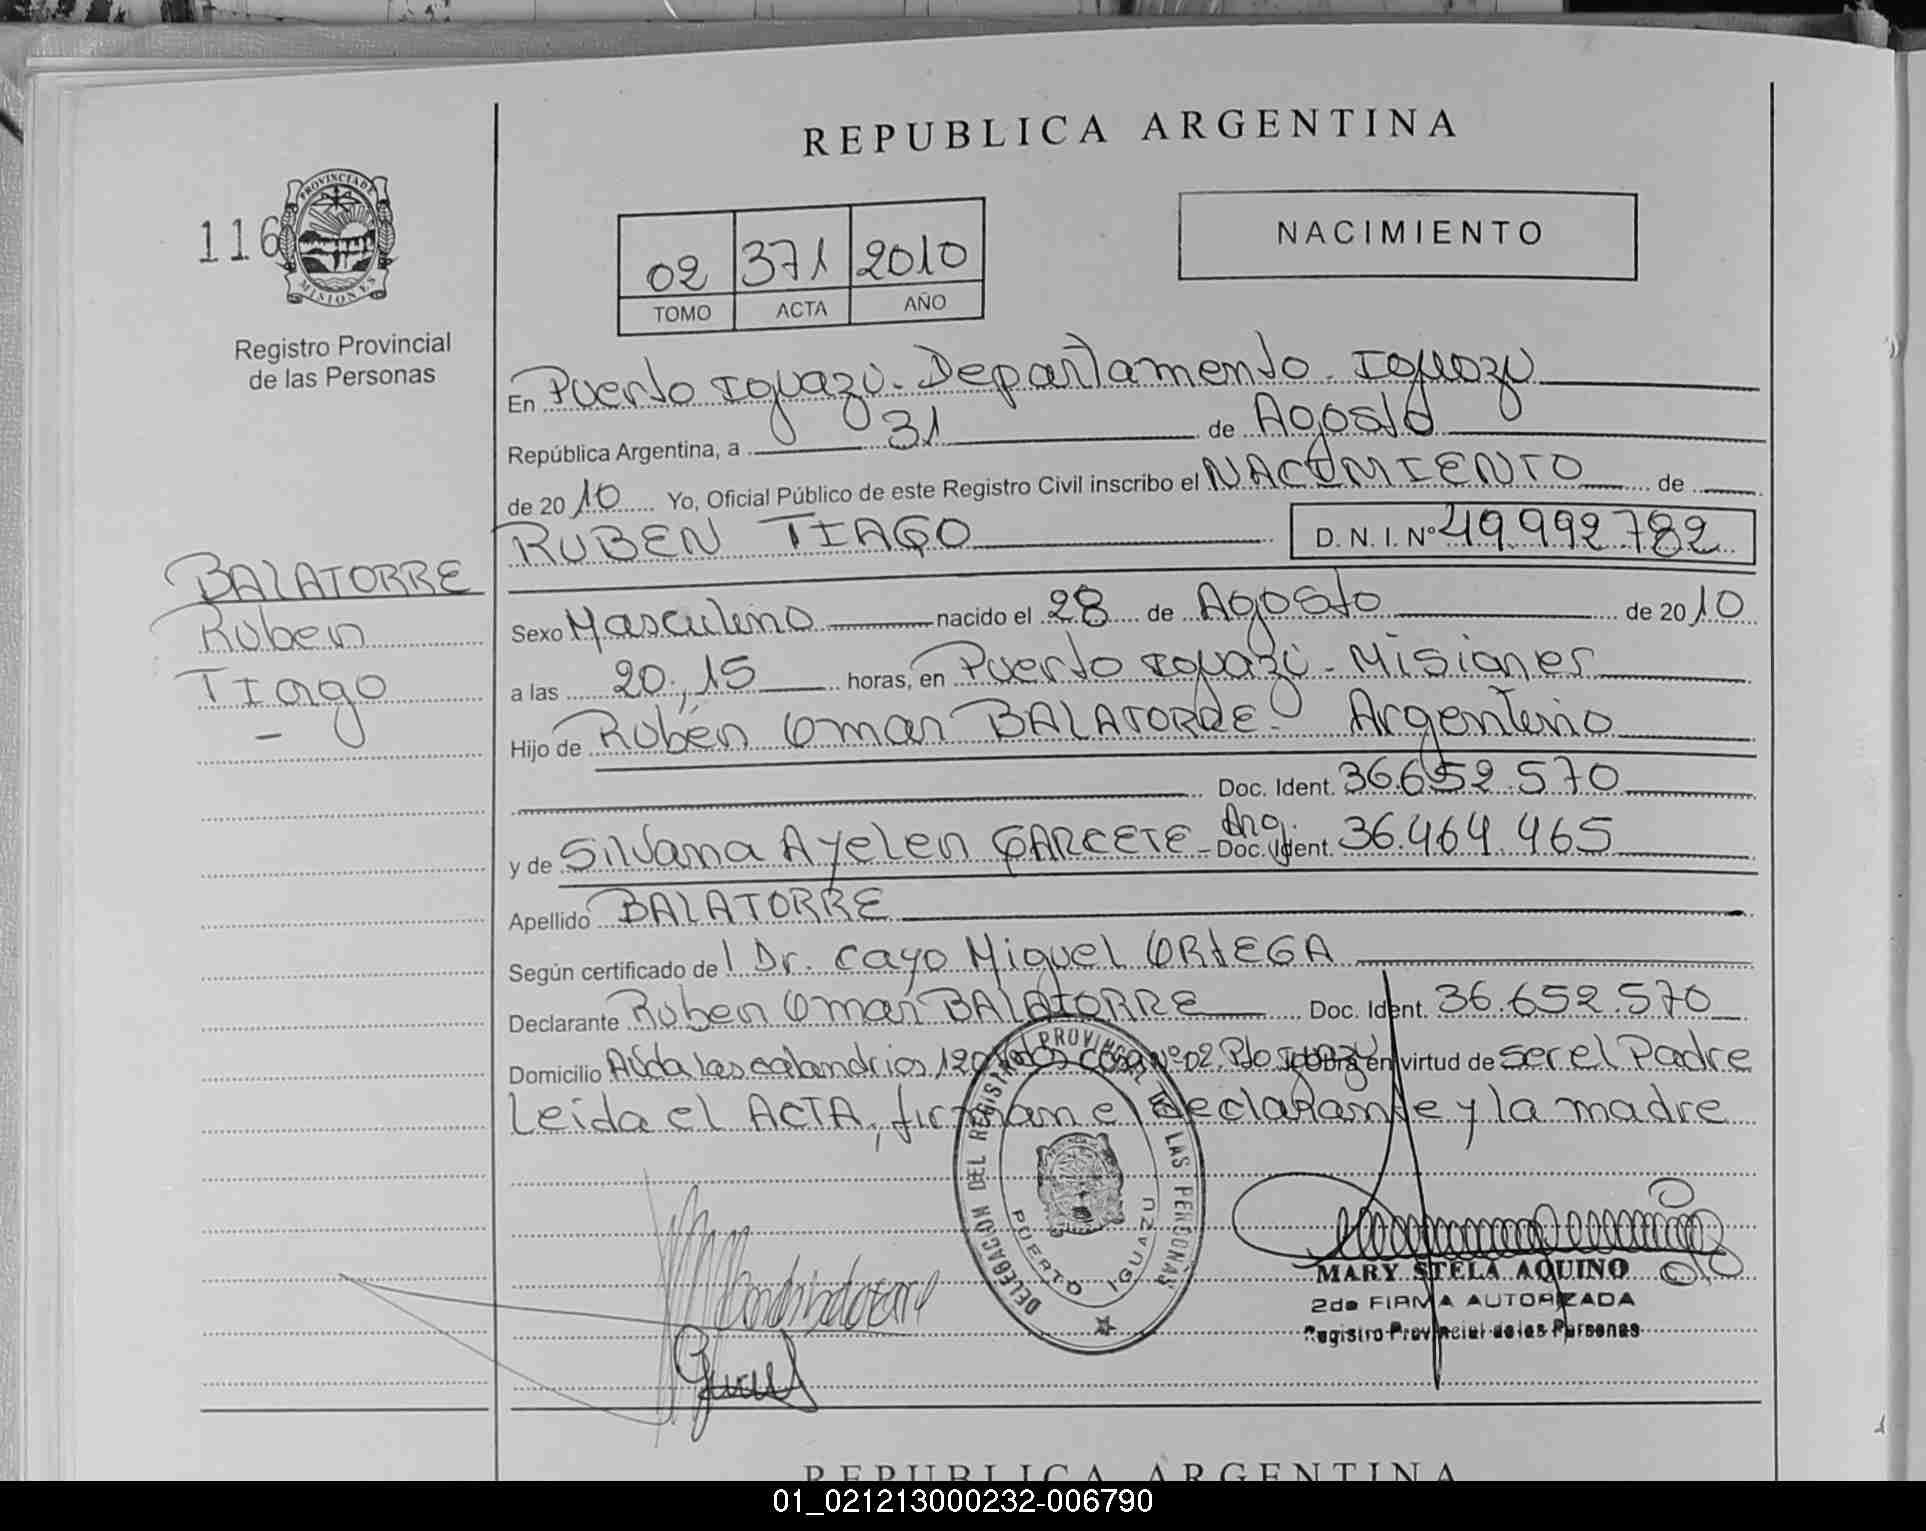 REPUBLICA ARGENTINA
116
PROVINCIA DE
MISIONES
Registro Provincial
de las Personas
02 371 2010
TOMO ACTA AÑO
NACIMIENTO
En Puerto Iguazú - Departamento - Iguazú
República Argentina, a 31 de Agosto
de 2010 Yo, Oficial Público de este Registro Civil inscribo el NACIMIENTO de
RUBEN TIAGO D.N.I. Nº 49.992.782
BALATORRE
Ruben
Tiago
-
Sexo Masculino nacido el 28 de Agosto de 2010
a las 20:,15 horas, en Puerto Iguazú - Misiones
Hijo de Rubén Omar BALATORRE - Argentino
Doc. Ident. 36.652.570
y de Silvana Ayelen GARCETE - Arg. Doc. Ident. 36.464.465
Apellido BALATORRE
Según certificado de l Dr. Cayo Miguel ORTEGA
Declarante Ruben Omar BALATORRE Doc. Ident. 36.652.570
Domicilio Avda las calandrias, 120 casa Nº 02. Pto Iguazú Obra en virtud de ser el Padre
Leida el ACTA, firman el declarante y la madre
DELEGACION DEL REGISTRO PROVINCIAL DE LAS PERSONAS
PUERTO IGUAZU
MARY STELA AQUINO
2da FIRMA AUTORIZADA
Registro Provincial de las Personas
REPUBLICA ARGENTINA
01_021213000232-006790